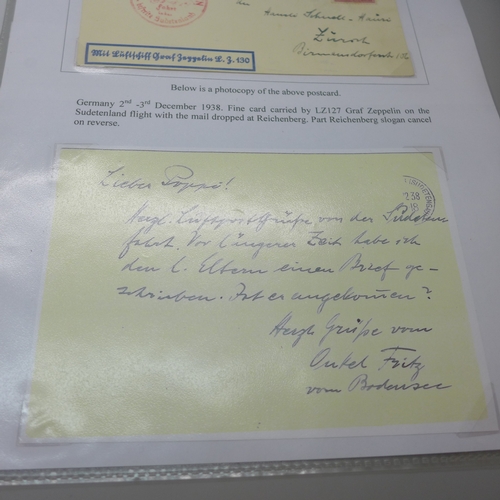 Fahrt
Sudetenland
An Hände Schmidt-
Zürich
Birmensdorferstr.
Mit Luftschiff Graf Zeppelin L.Z.130
Below is a photocopy of the above postcard.
Germany 2nd -3rd December 1938. Fine card carried by LZ127 Graf Zeppelin on the
Sudetenland flight with the mail dropped at Reichenberg. Part Reichenberg slogan cancel
on reverse.
Lieber Poppi!
Herzl. Luftpost Grüße von der Sudeten
fahrt. Vor längerer Zeit habe ich
den l. Eltern einen Brief ge-
schrieben. Ist er angekommen?
Herzl Grüße vom
Onkel Fritz
vom Bodensee
2.38
18